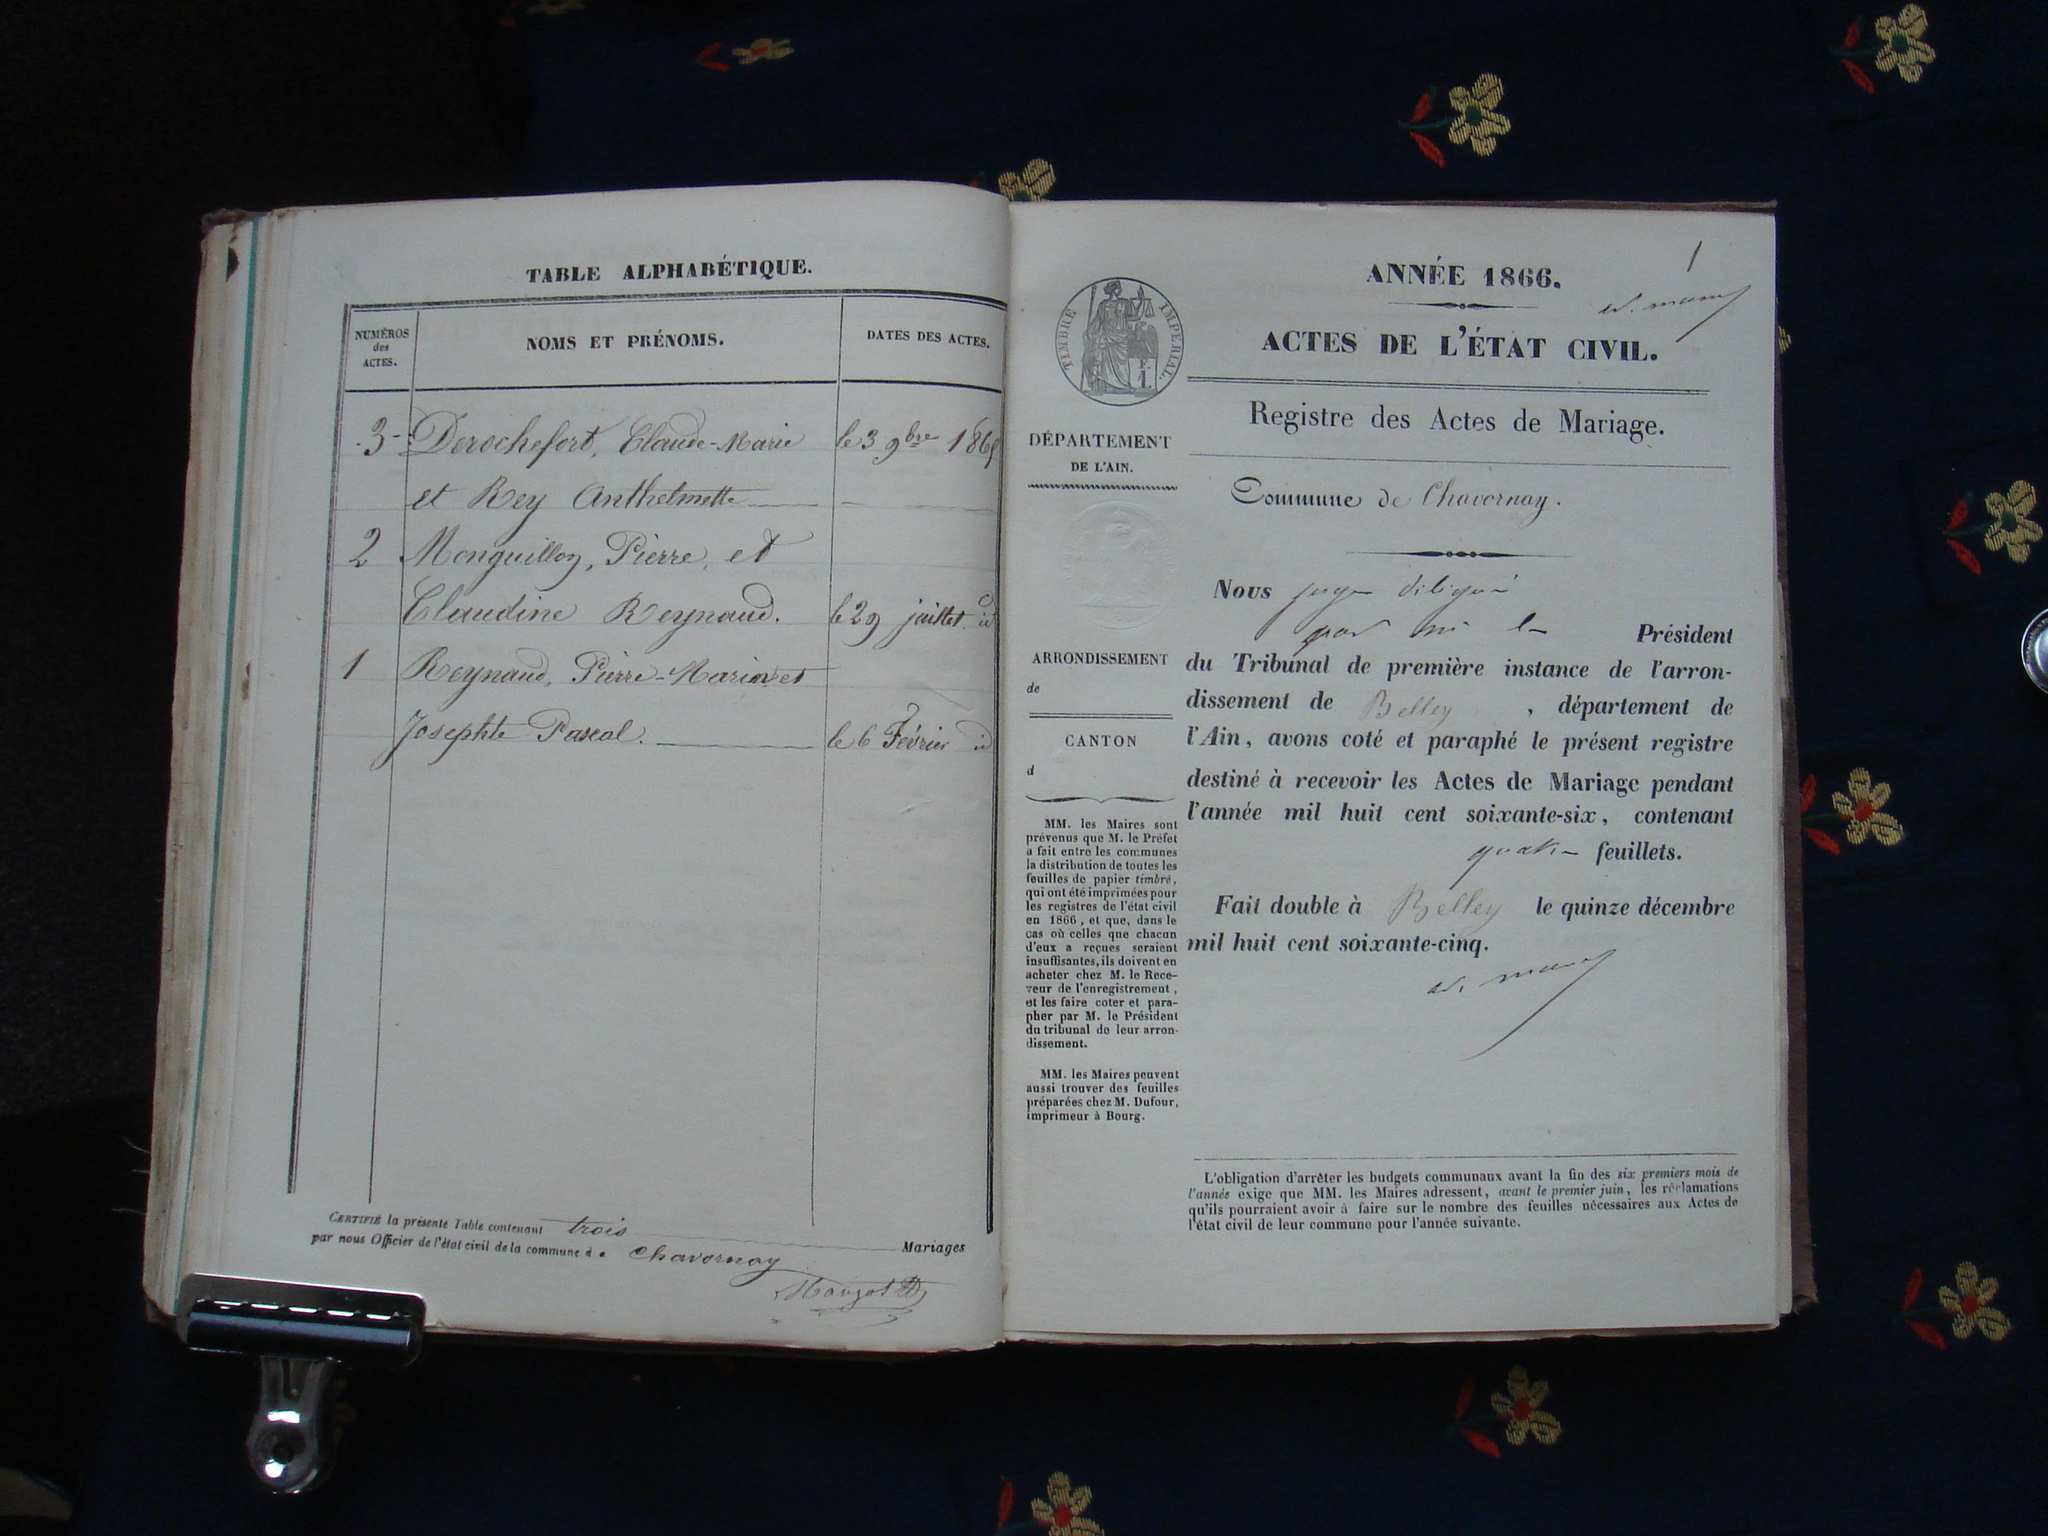 TABLE ALPHABÉTIQUE.
NUMÉROS des ACTES.
NOMS ET PRÉNOMS.
DATES DES ACTES.
3 Derochefort, Claude-Marie le 3 9bre 1865
et Rey Anthelmette
2 Monguillon, Pierre, et
Claudine Reynaud. le 29 juillet id
1 Reynaud, Pierre-Marin et
Josephte Pascal. le 6 Février id
CERTIFIÉ la présente Table contenant trois Mariages
par nous Officier de l'état civil de la commune de Chavornay
1
ANNÉE 1866.
ACTES DE L'ÉTAT CIVIL.
TIMBRE IMPÉRIAL.
F. 1.
DÉPARTEMENT
DE L'AIN.
ARRONDISSEMENT
de
CANTON
d
MM. les Maires sont
prévenus que M. le Préfet
a fait entre les communes
la distribution de toutes les
feuilles de papier timbré,
qui ont été imprimées pour
les registres de l'état civil
en 1866, et que, dans le
cas où celles que chacun
d'eux a reçues seraient
insuffisantes, ils doivent en
acheter chez M. le Rece-
veur de l'enregistrement,
et les faire coter et para-
pher par M. le Président
du tribunal de leur arron-
dissement.
MM. les Maires peuvent
aussi trouver des feuilles
préparées chez M. Dufour,
imprimeur à Bourg.
Registre des Actes de Mariage.
Commune de Chavornay.
Nous juge délégué
par le Président
du Tribunal de première instance de l'arron-
dissement de Belley, département de
l'Ain, avons coté et paraphé le présent registre
destiné à recevoir les Actes de Mariage pendant
l'année mil huit cent soixante-six, contenant
quatre feuillets.
Fait double à Belley le quinze décembre
mil huit cent soixante-cinq.
L'obligation d'arrêter les budgets communaux avant la fin des six premiers mois de
l'année exige que MM. les Maires adressent, avant le premier juin, les réclamations
qu'ils pourraient avoir à faire sur le nombre des feuilles nécessaires aux Actes de
l'état civil de leur commune pour l'année suivante.